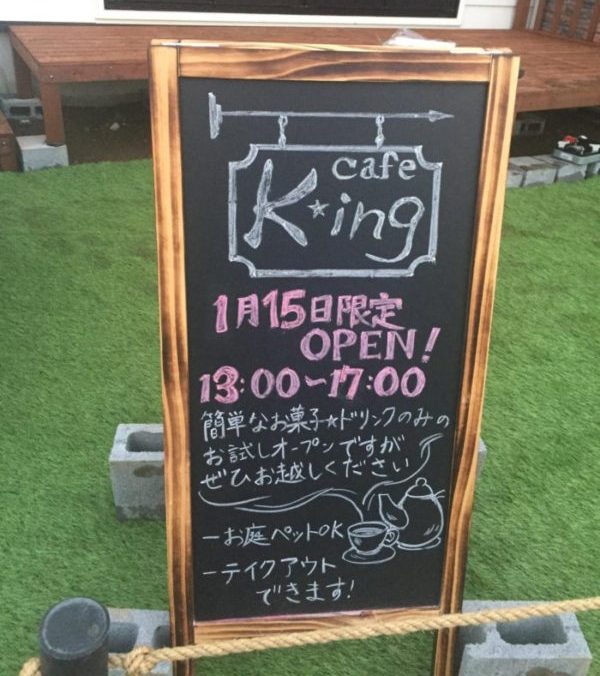 cafe
K★ing
1月15日限定
OPEN!
13:00～17:00
簡単なお菓子★ドリンクのみの
お試しオープンですが
ぜひお越しください
－お庭ペットOK
－テイクアウト
できます!